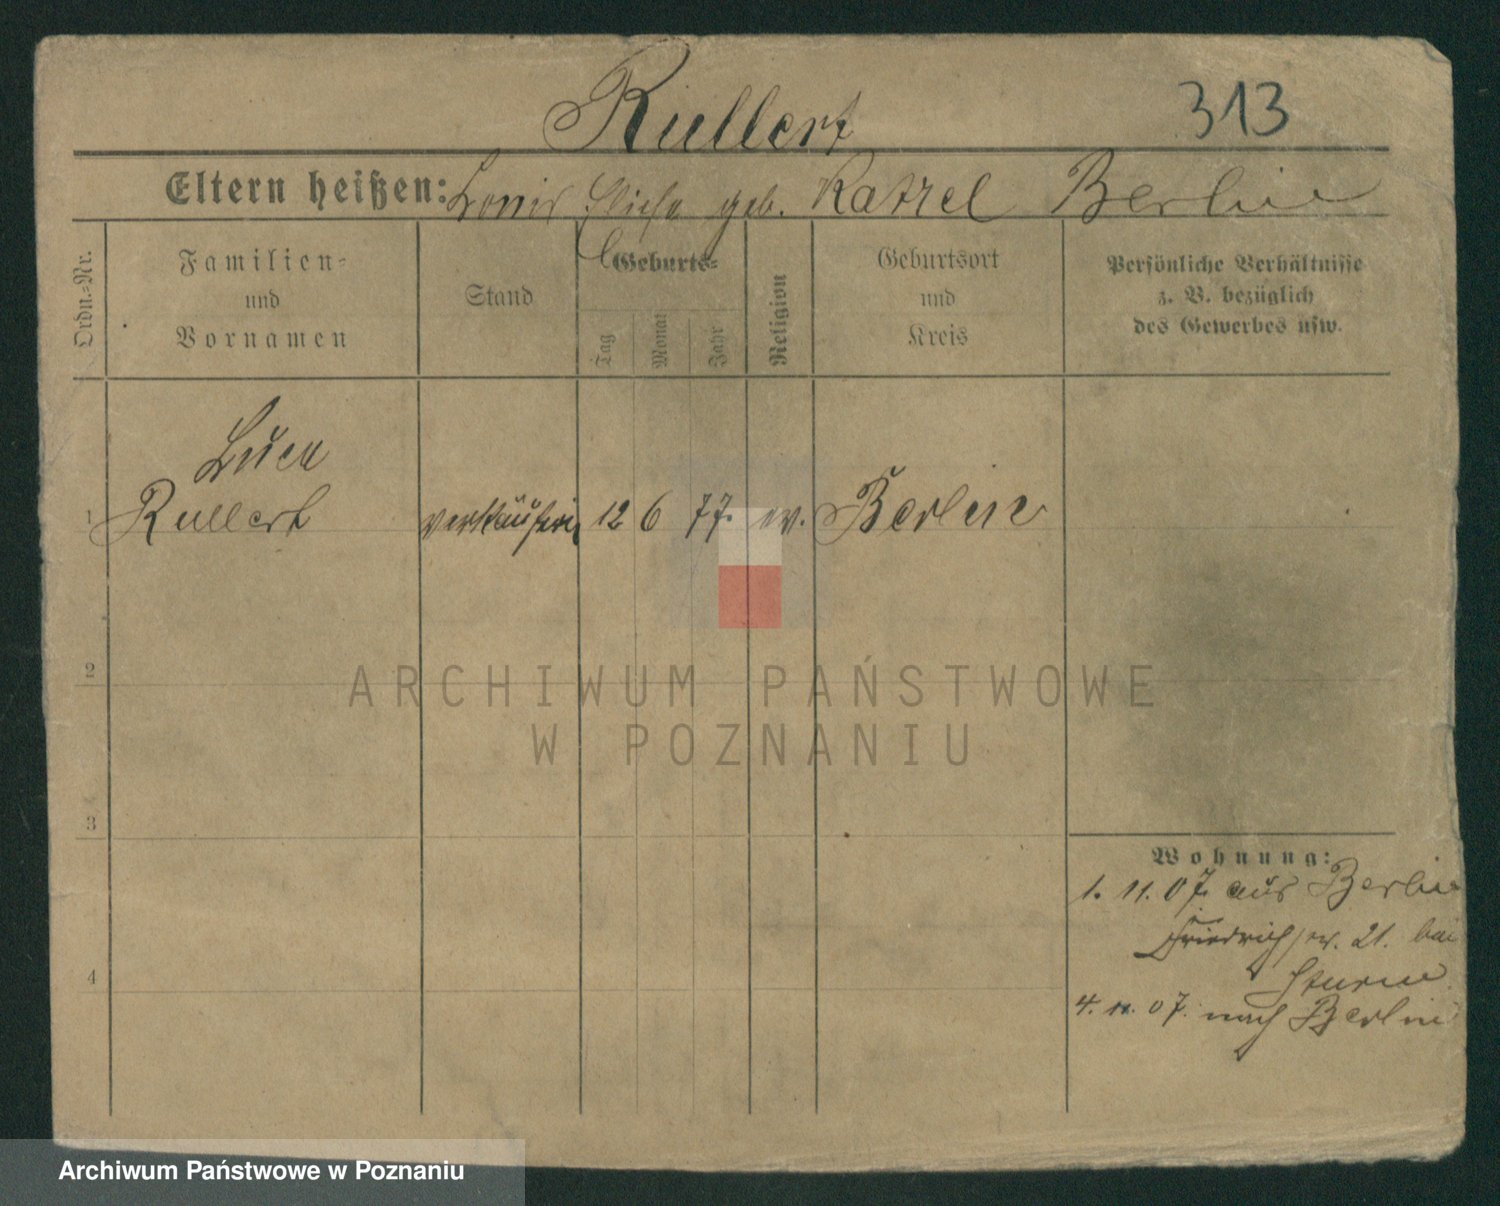 Rullert 313
Eltern heißen: Louis Elise geb. Katzel Berlin
Ordn.=Nr.
Familien=
und
Vornamen
Stand
Geburts=
Tag
Monat
Jahr
Religion
Geburtsort
und
Kreis
Persönliche Verhältnisse
z. B. bezüglich
des Gewerbes usw.
1
Rullert
verkäuferin 12 6 77. ev. Berlin
2
3
4
Wohnung:
1. 11. 07. aus Berlin
Friedrichstr. 21. bei
Sturm
4. 11. 07. nach Berlin
ARCHIWUM PAŃSTWOWE
W POZNANIU
Archiwum Państwowe w Poznaniu